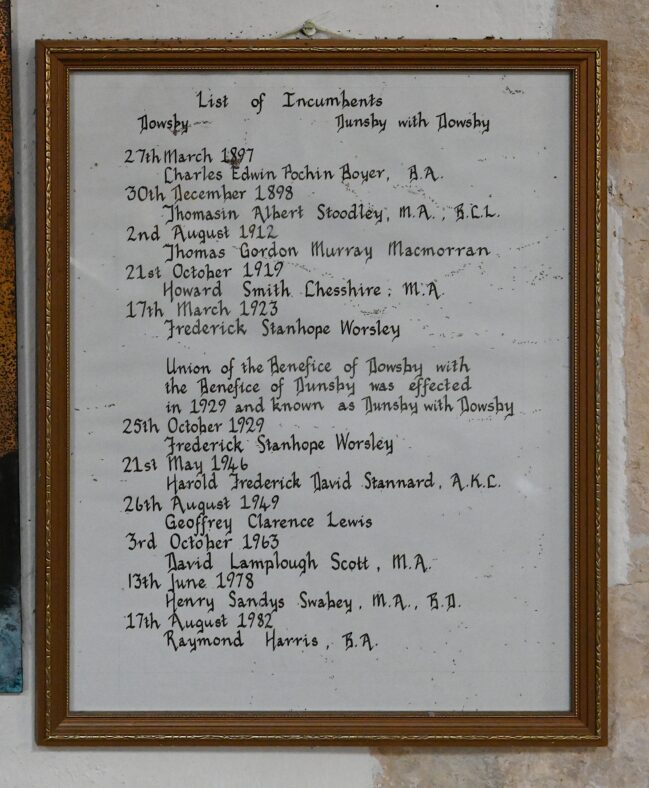 List of Incumbents
Dowsby Dunsby with Dowsby
27th March 1897
Charles Edwin Pochin Boyer, B.A.
30th December 1898
Thomasin Albert Stoodley, M.A., B.C.L.
2nd August 1912
Thomas Gordon Murray Macmorran
21st October 1919
Howard Smith Chesshire, M.A.
17th March 1923
Frederick Stanhope Worsley
Union of the Benefice of Dowsby with
the Benefice of Dunsby was effected
in 1929 and known as Dunsby with Dowsby
25th October 1929
Frederick Stanhope Worsley
21st May 1946
Harold Frederick David Stannard, A.K.C.
26th August 1949
Geoffrey Clarence Lewis
3rd October 1963
David Lamplough Scott, M.A.
13th June 1978
Henry Sandys Swabey, M.A., B.D.
17th August 1982
Raymond Harris, B.A.